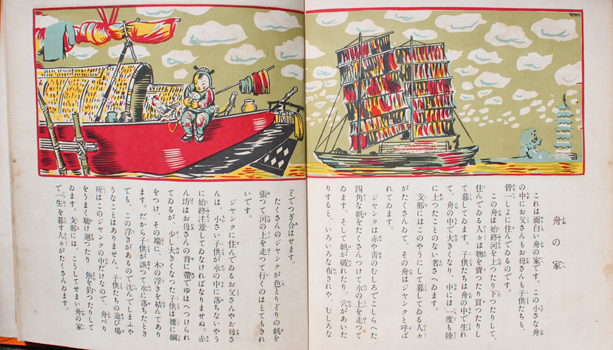 舟の家
これは面白い舟の家です。この小さな舟
の中に、お父さんもお母さんも子供たちも、
皆一しよに住んでゐるのです。
この舟は始終河を上つたり下つたりして、
住んでゐる人々は物を賣つたり買つたりし
て暮してゐます。子供たちは舟の中で生れ
て、舟の中で大きくなり、中には一度も陸
に上つたことのない者さへゐます。
支那にはこのやうにして暮してゐる人々
がたくさんゐて、その舟はジヤンクと呼ば
れてゐます。
ジヤンクは赤や青のむしろでこしらへた
四角な帆をたくさんつけて水の上を走つて
ゐます。そして帆が破れたり、穴があいた
りすると、いろいろな布きれや、むしろな
どでつぎ合はせます。
たくさんのジヤンクが色とりどりの帆を
張つて河の上を走つて行くのはとてもきれ
いです。
ジヤンクに住んでゐるお父さんやお母さ
んは、小さい子供が水の中に落ちないやう
に始終注意してゐなければなりませぬ。赤
ん坊はお母さんの背に帶でゆはへつけられ
てゐるが、少し大きくなつた子供は腰に綱
をつけ、その端に木の浮きを結んであり
ます。だから子供が誤つて水に落ちたとき
でも、この浮きがあるので沈んでしまふや
うなことはありません。子供たちの遊び場
所はこのジヤンクの中だけなので、舟べり
をうまく駆け廻つたり、魚を釣つたりして
ゐます。支那には、こうしてせまい舟の家
で一生を暮す人々がたくさんゐます。